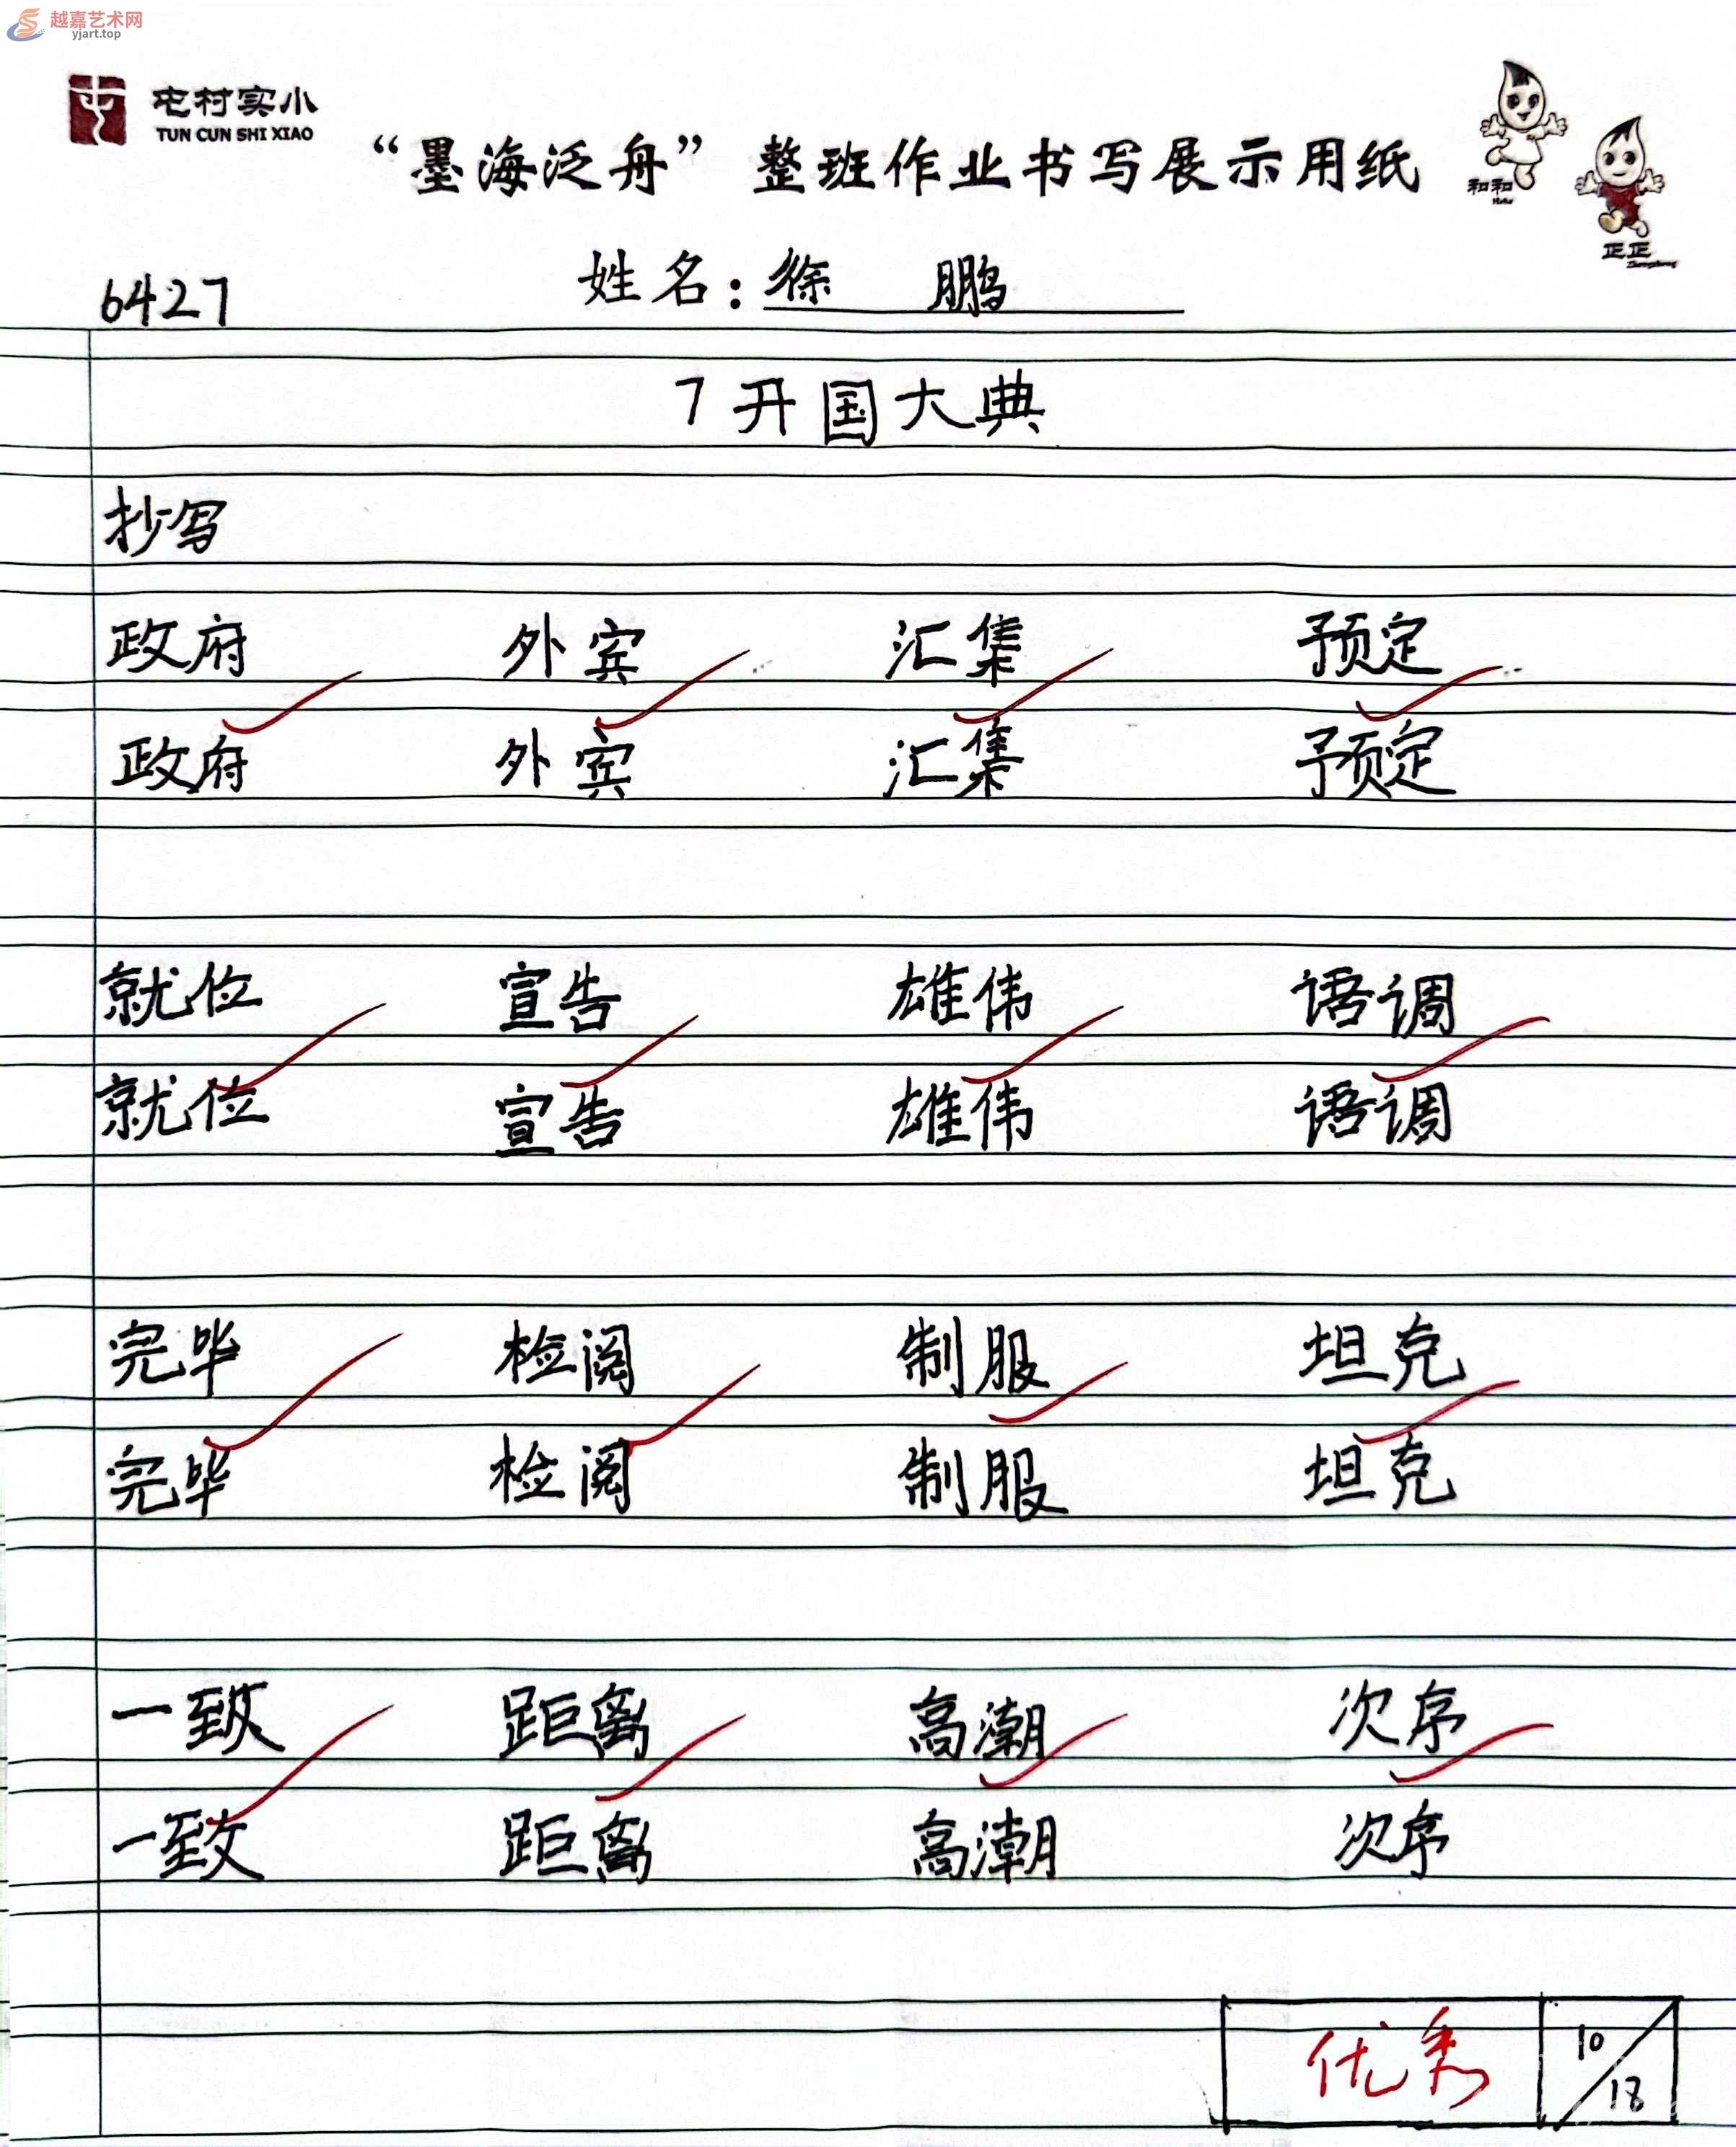 越嘉艺术网
yjart.top
屯村实小
TUN CUN SHI XIAO
“墨海泛舟”整班作业书写展示用纸
和和
Hehe
正正
Zhengzheng
6427 姓名：徐 鹏
7 开国大典
抄写
政府 外宾 汇集 预定
政府 外宾 汇集 预定
就位 宣告 雄伟 语调
就位 宣告 雄伟 语调
完毕 检阅 制服 坦克
完毕 检阅 制服 坦克
一致 距离 高潮 次序
一致 距离 高潮 次序
优秀 10/18